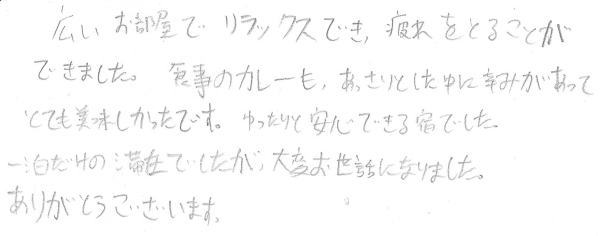 広いお部屋でリラックスでき、疲れをとることが
できました。食事のカレーも、あっさりとした中に辛みがあって
とても美味しかったです。ゆったりと安心できる宿でした。
一泊だけの滞在でしたが、大変お世話になりました。
ありがとうございます。